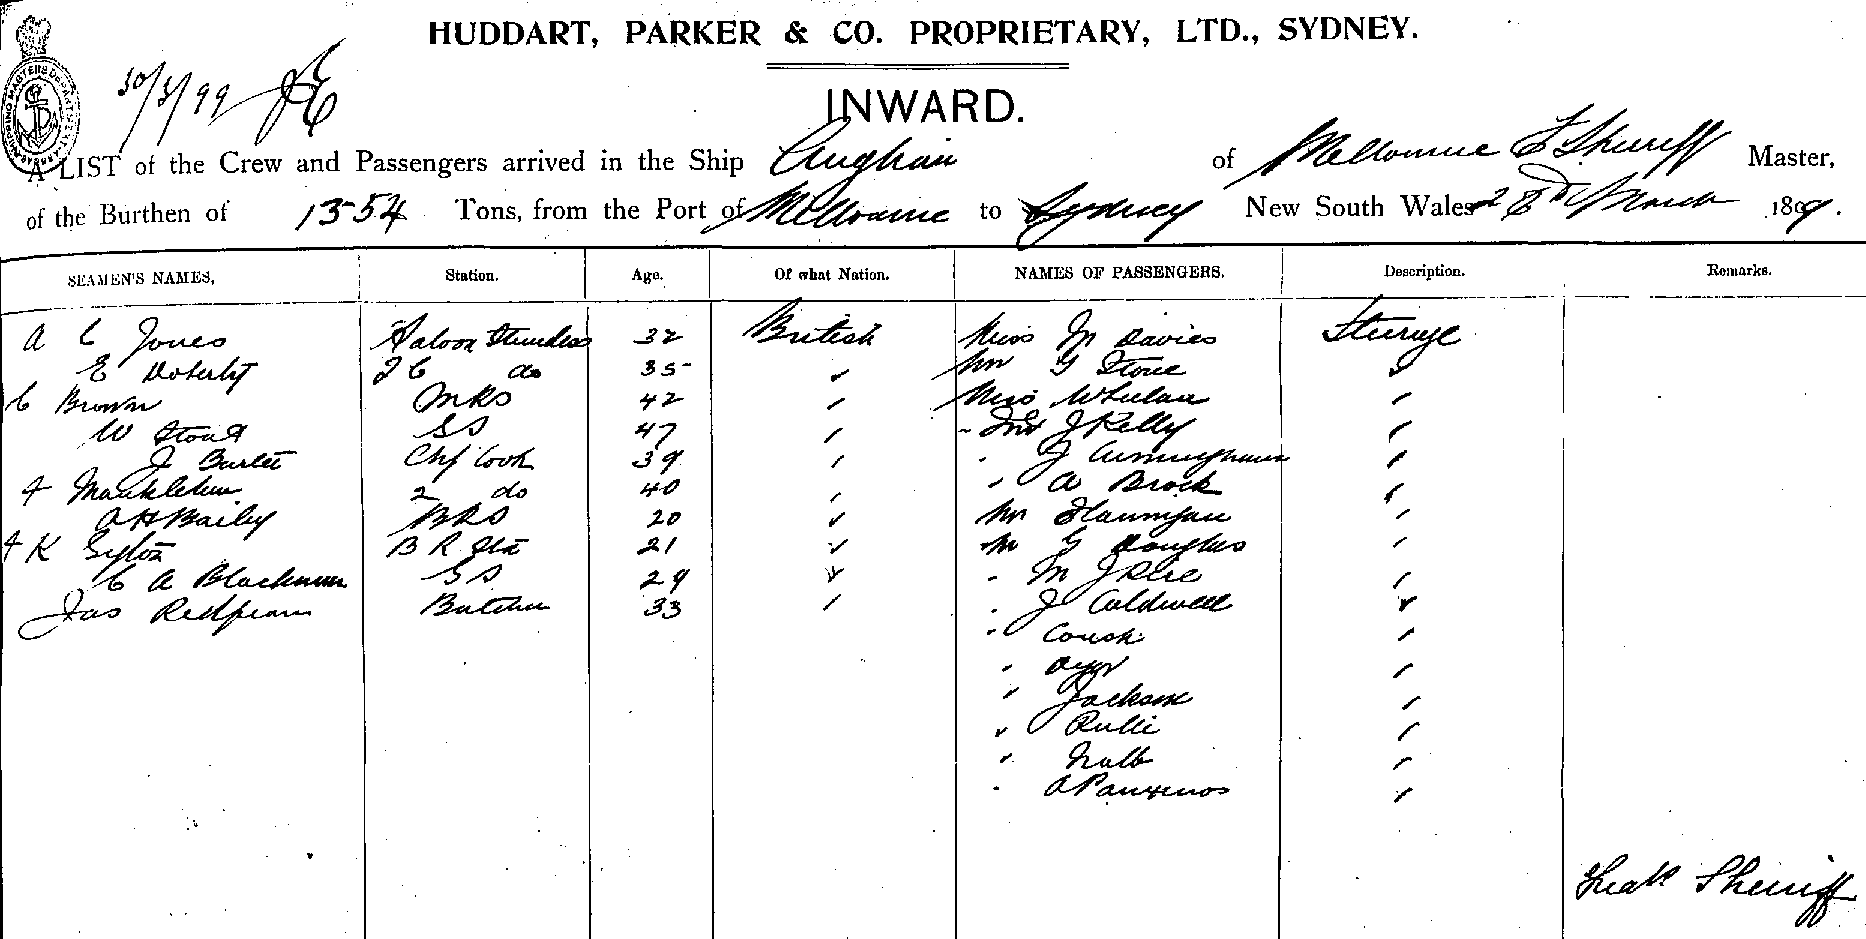 HUDDART, PARKER & CO. PROPRIETARY, LTD., SYDNEY.
30/3/99
INWARD.
A LIST of the Crew and Passengers arrived in the Ship of Melbourne F Sherriff Master,
of the Burthen of 1354 Tons, from the Port of Melbourne to Sydney New South Wales 28th March 1899.
SEAMEN'S NAMES, Station. Age. Of what Nation. NAMES OF PASSENGERS. Description. Remarks.
A C Jones Saloon 32 British Miss M Davies Steerage
E Doherty 2 C do 35 Mr G Stone
C Brown MRS 42 Miss Whelan
W Stout SS 47 J Kelly
J Chf Cook 39 J Cunningham
2 do 40 " A Brock
A H Baily BRS 20 Mr Flannigan
F K B R 21 Mr G Douglas
C A Blackman SS 29 " M J
Jas Redfearn Butcher 33 " J Caldwell
"
"
" Jackson
"
"
"
Sherriff